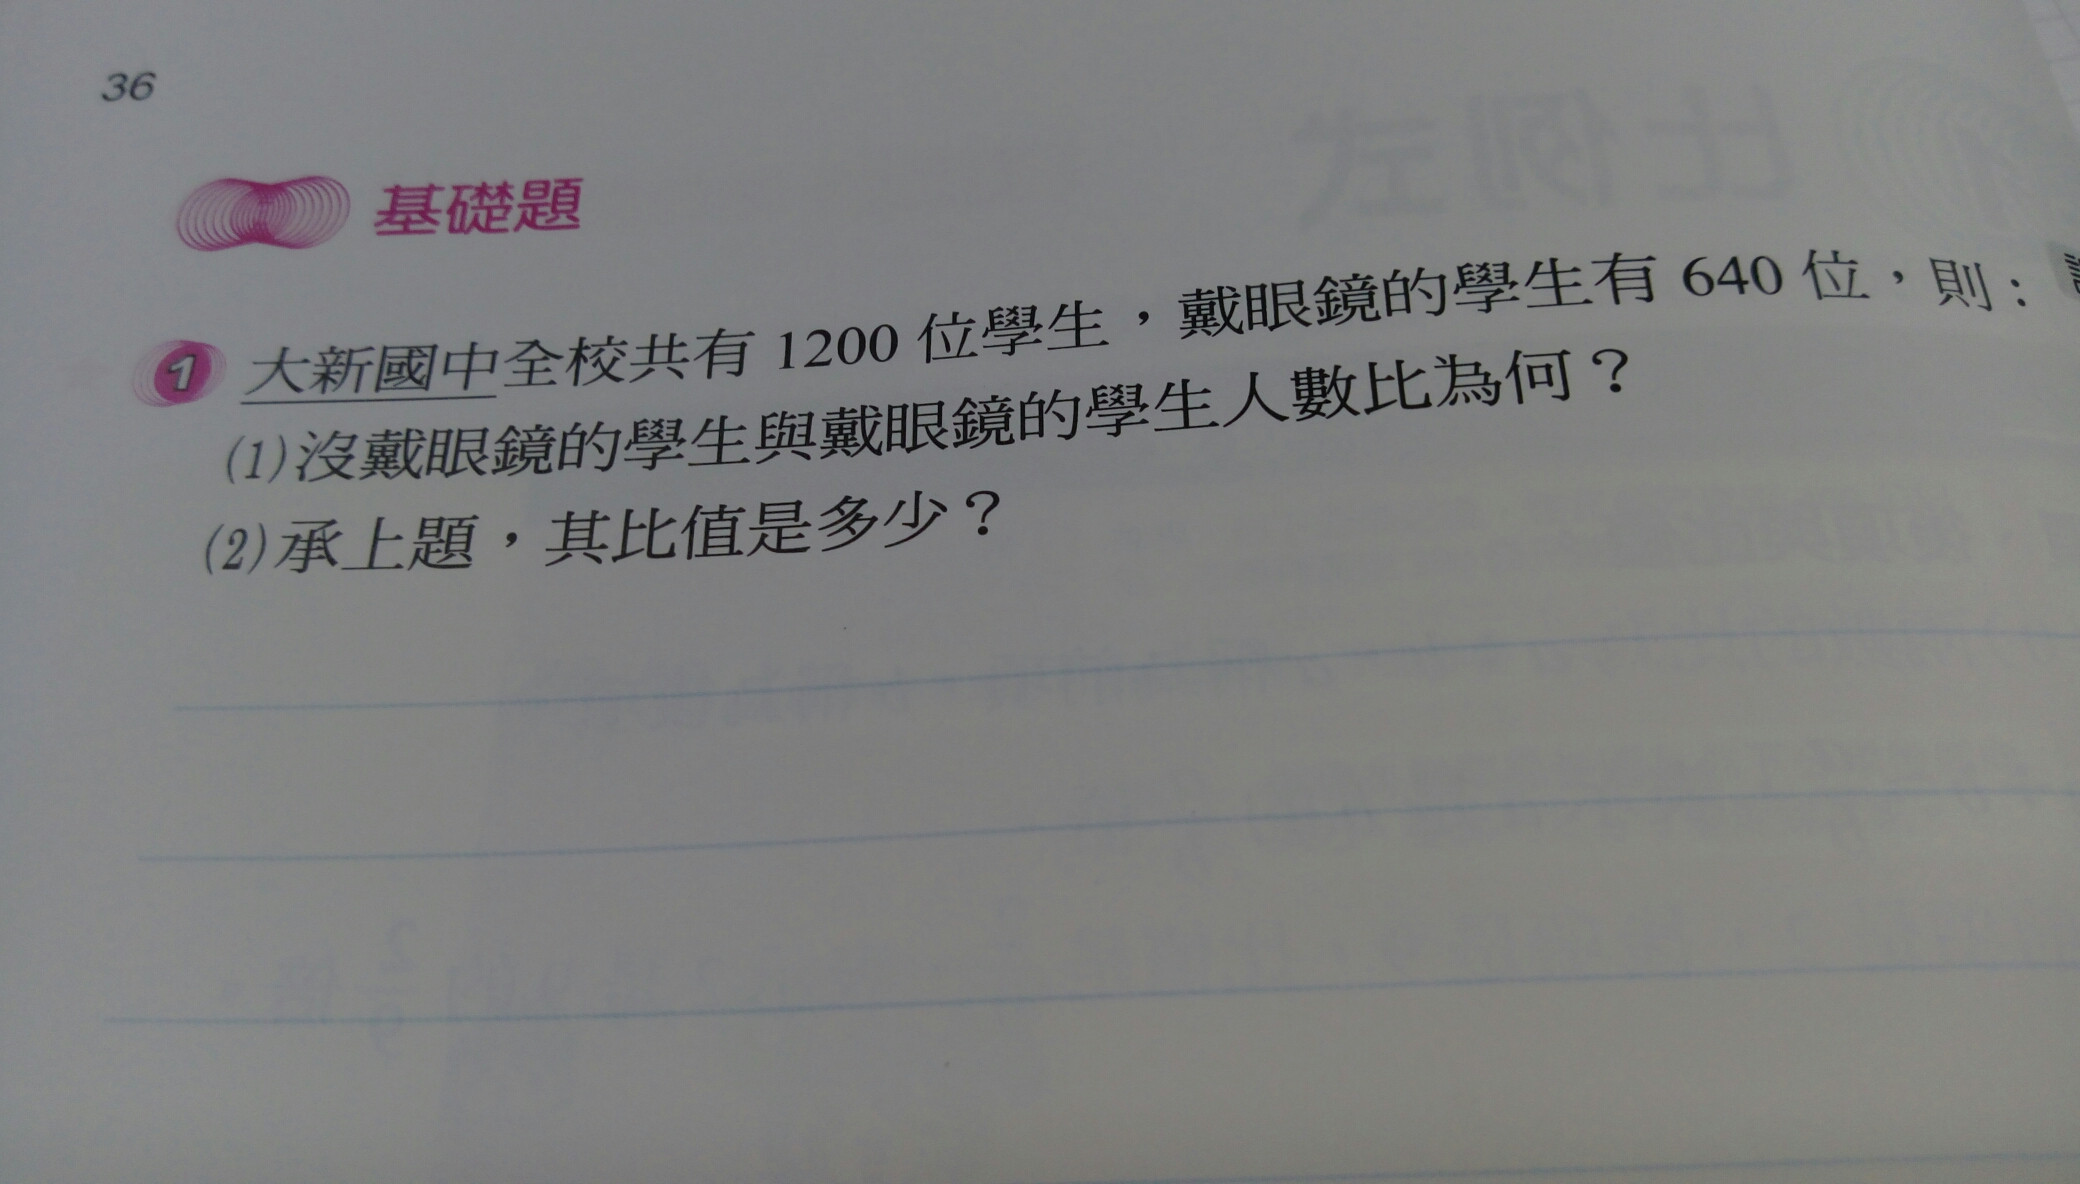 36
基礎題
1 大新國中全校共有 1200 位學生，戴眼鏡的學生有 640 位，則：
(1)沒戴眼鏡的學生與戴眼鏡的學生人數比為何？
(2)承上題，其比值是多少？
比例式